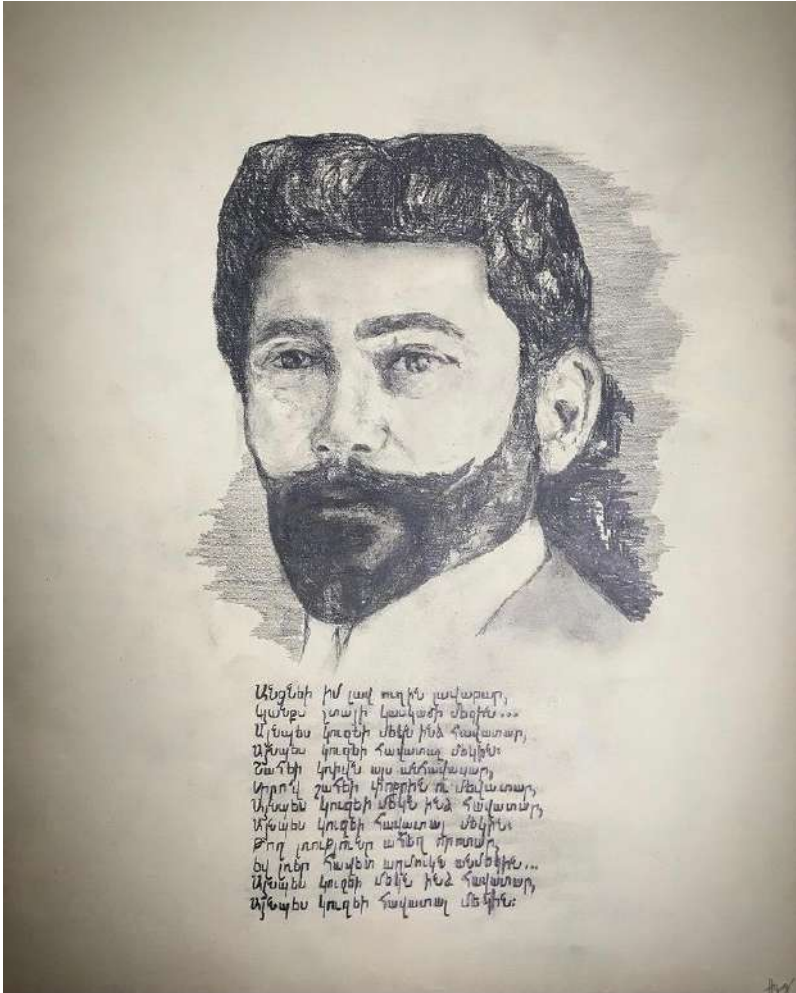 Անցնեի իմ լավ ուղին լավաբար,
Կյանքս չտայի կասկածի մեգին...
Այնպես կուզեի մեկն ինձ հավատար,
Այնպես կուզեի հավատալ մեկին։
Շահեի կռիվն այս անհավասար,
Սիրով շահեի փոքրին ու
Այնպես կուզեի մեկն ինձ հավատար,
Այնպես կուզեի հավատալ մեկին։
Թող լռությունը ահեղ որոտար,
Եվ լռեր հավետ աղմուկն
Այնպես կուզեի մեկն ինձ հավատար,
Այնպես կուզեի հավատալ մեկին։